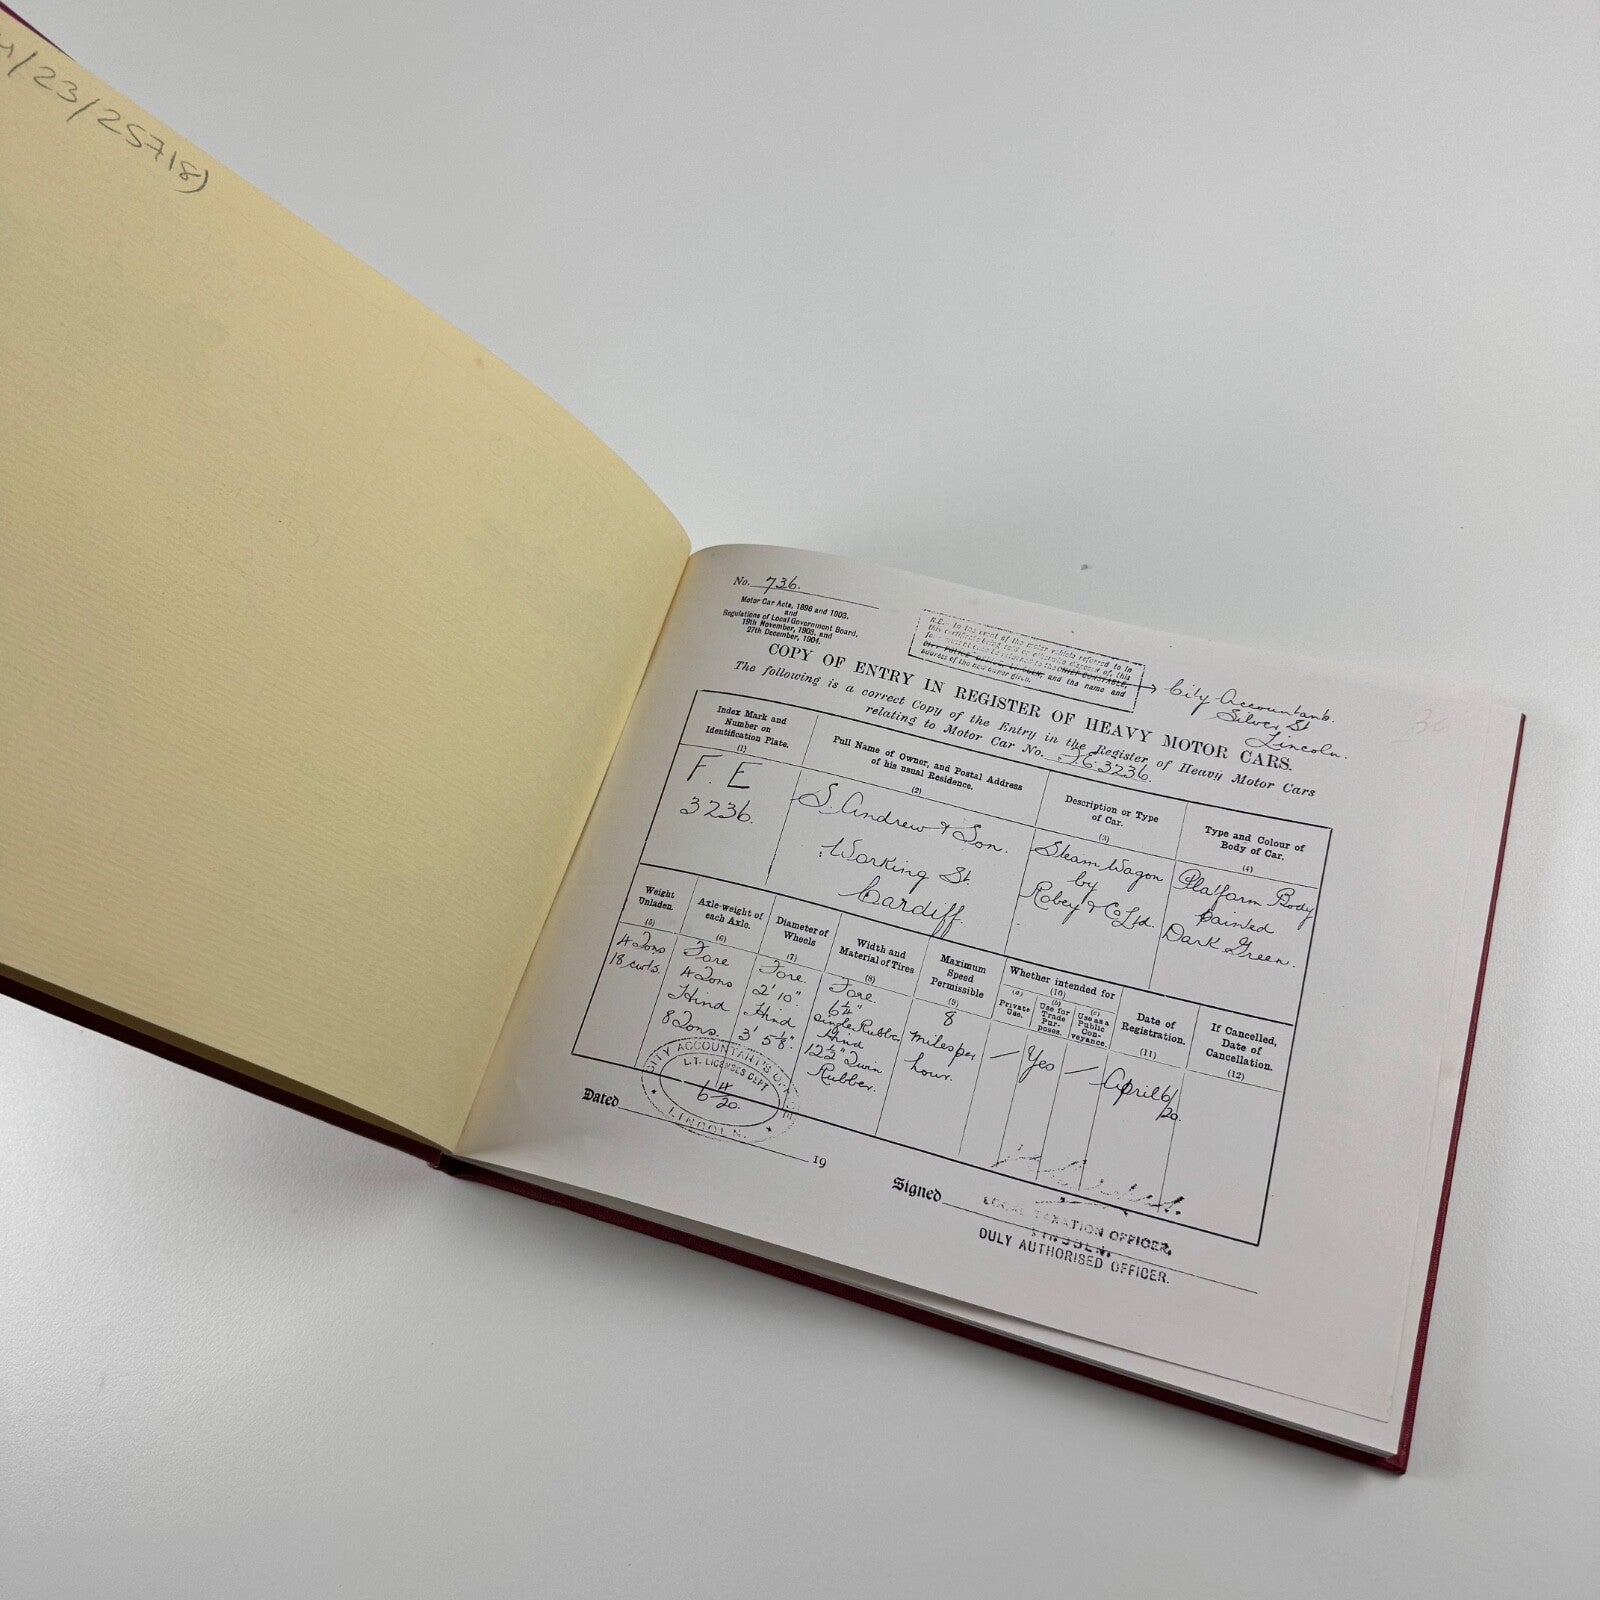 /23/25718)
No. 736.
Motor Car Acts, 1896 and 1903,
and
Regulations of Local Government Board,
19th November, 1903, and
27th December, 1904.
N.B.- In the event of the motor vehicle referred to in
this certificate being sold or otherwise disposed of, this
form must at once be returned to the CHIEF CONSTABLE,
CITY POLICE OFFICE, LINCOLN, and the name and
address of the new owner given.
City Accountant.
Silver St
Lincoln.
COPY OF ENTRY IN REGISTER OF HEAVY MOTOR CARS.
The following is a correct Copy of the Entry in the Register of Heavy Motor Cars
relating to Motor Car No. FE 3236.
Index Mark and
Number on
Identification Plate.
(1)
Full Name of Owner, and Postal Address
of his usual Residence.
(2)
Description or Type
of Car.
(3)
Type and Colour of
Body of Car.
(4)
F. E
3236.
S. Andrew & Son.
Working St.
Cardiff.
Steam Wagon
by
Robey & Co Ltd.
Platform Body
painted
Dark Green.
Weight
Unladen.
(5)
Axle-weight of
each Axle.
(6)
Diameter of
Wheels
(7)
Width and
Material of Tires
(8)
Maximum
Speed
Permissible
(9)
Whether intended for
(10)
(a)
Private
Use.
(b)
Use for
Trade
Pur-
poses.
(c)
Use as a
Public
Con-
veyance.
Date of
Registration.
(11)
If Cancelled,
Date of
Cancellation.
(12)
4 Tons
18 cwts.
Fore
4 Tons
Hind
8 Tons.
Fore.
2' 10".
Hind
3' 5⅛".
Fore.
6¼"
single Rubber
Hind
12½" Twin
Rubber.
8
miles per
hour.
— Yes —
April 6/20.
CITY ACCOUNTANT'S OFFICE
L.T. LICENSES DEPT
6 4 20.
LINCOLN.
Dated 19
Signed
LOCAL TAXATION OFFICER,
LINCOLN.
DULY AUTHORISED OFFICER.